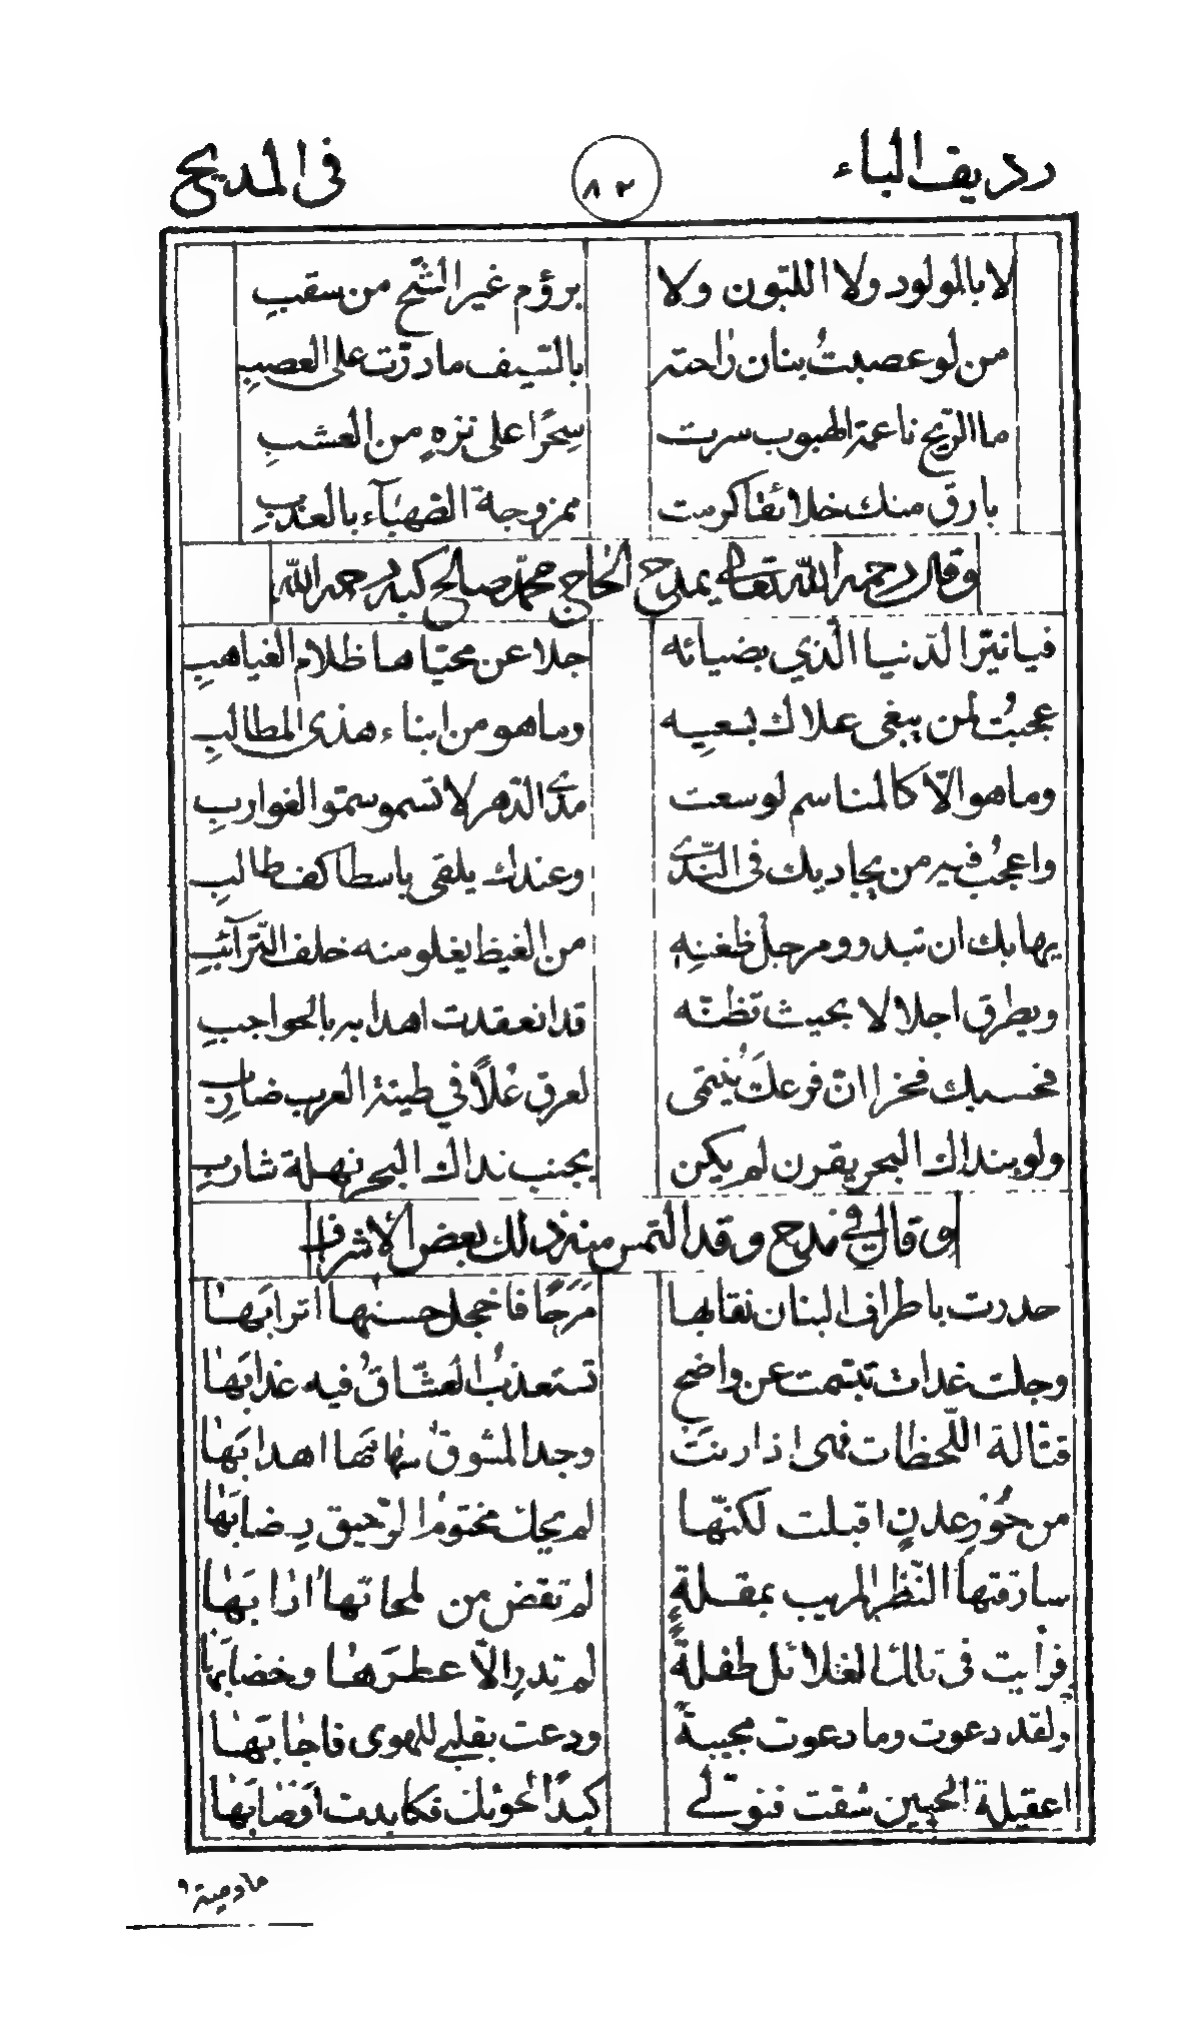 رديف الباء ٨٢ فى المديح
لا بالمولود ولا اللبون ولا برؤم غير الشّح من سقبِ
من لو عصبتُ بنان راحته بالسّيف ما درّت على العصبِ
ما الرّيح ناعمة الهبوب سرت سِحرًا على نزهٍ من العشبِ
بارق منك خلائقا كرمت ممزوجة الصّهبآء بالعذبِ
وقال رحمه الله تعالى يمدح الحاج محمّد صالح كبه رحمه الله
فيا نيّرا الدّنيا الّذي بضيائه جلا عن محيّاها ظلام الغياهبِ
عجبتُ لمن يبغى علاك بسعيِه وما هو من ابناء هذى المطالبِ
وما هو الّا كالمناسم لو سعت مدى الدّهر لا تسمو سموّ الغواربِ
واعجبُ فيه من يجاديك فى النّدى وعندك يلقى باسطا كف طالبِ
يهابك ان تبدو ومرجل ظغنِهِ من الغيظ يغلو منه خلف التّرآئبِ
ويطرق اجلالا بحيث تظنّه قد انعقدت اهدابه بالحواجبِ
فحسبك فخرا انّ فرعكَ يُنتمى لعرق عُلًا في طينة العرب ضاربِ
ولو بنداك البحر يقرن لم يكن بجنب نداك البحر نهلة شاربِ
وقال في مدح وقد التمس منه ذلك بعض الأشراف
حدرت باطراف البنان نقابها مَرَحًا فاخجل حسنها اترابَها
وجلت غداة تبسّمت عن واضح تستعذبُ العشّاقُ فيه عذابَها
قتّالة اللّحظات فهى اذا رنَتْ وجد المشوقُ سهامَها اهدابَها
من حُوْرِ عدنٍ اقبلت لكنّها لم يحك مختومُ الرّحيق رضابَها
سارقتها النّظر المريب بمقلةٍ لم تقض من لمحاتها ارابَها
فرأيت فى تلك الغلائل طفلةً لم تدرِ الّا عطرَها وخضابَها
ولقد دعوت وما دعوت مجيبةً ودعت بقلبى للهوى فاجابَها
اعقيلة الحيين شقت فنولى كبدًا فكابدت اوصابَها